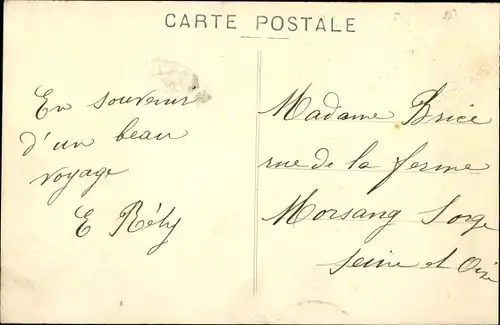 CARTE POSTALE
En souvenir
d'un beau
voyage
E Rély
Madame Brice
rue de la ferme
Morsang Sorge
Seine et Oise